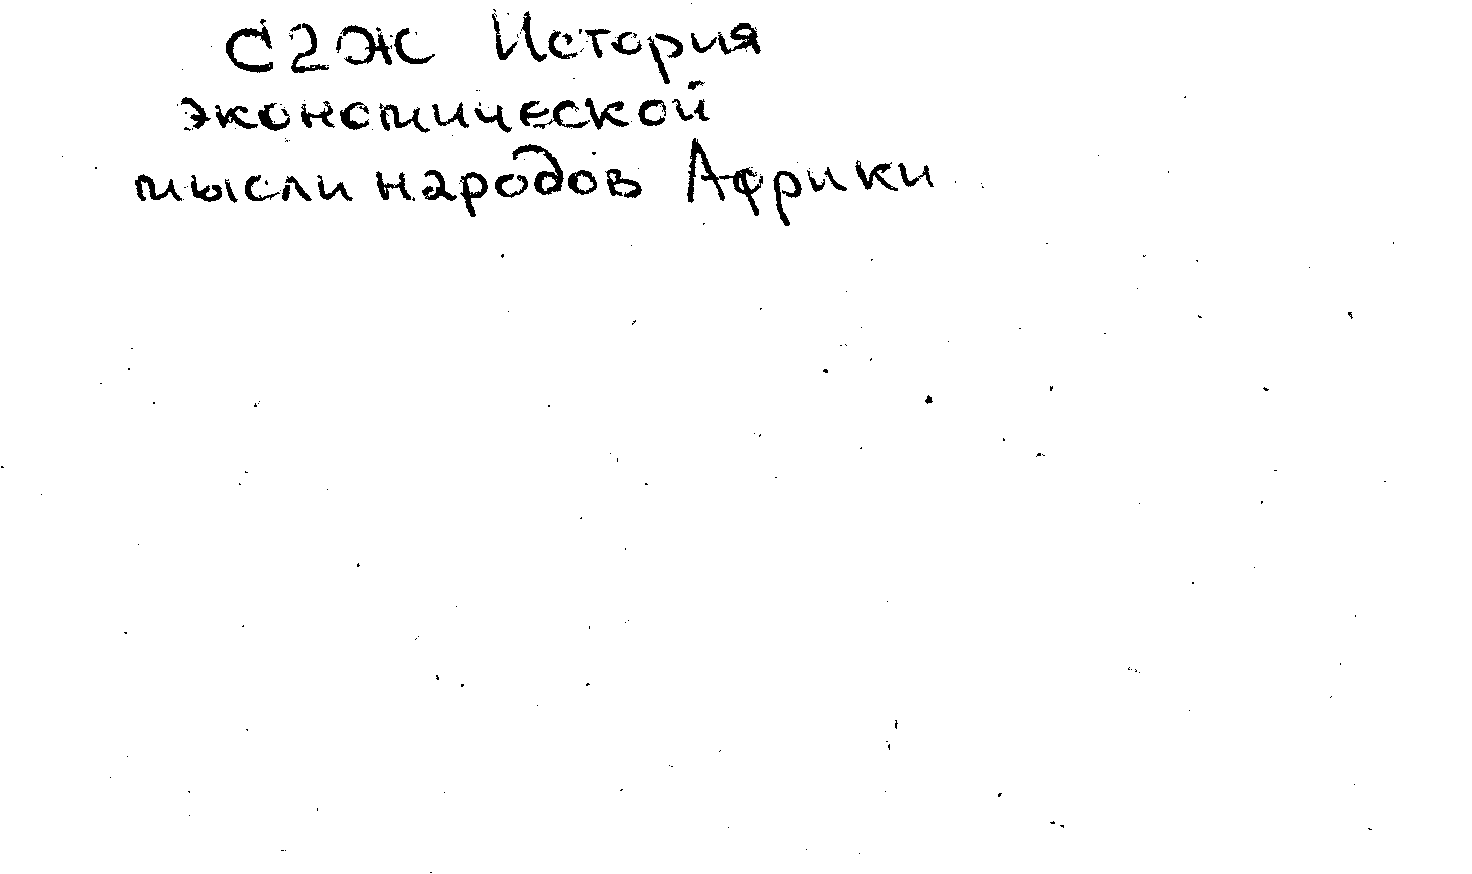 С2Ж История
экономической
мысли народов Африки